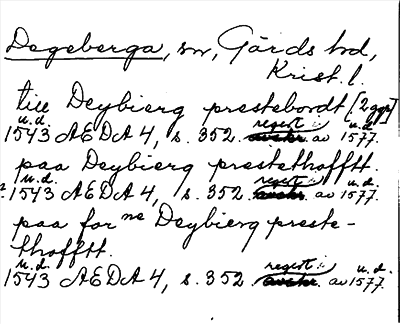 Degeberga, sn, Gärds hd,
Krist. l.
till Deybierg prestebordt [2 ggr]
u.d. regest i u.d.
1543 AEDA 4, s. 352. avskr. av 1577.
paa Deybierg prestethofftt.
u.d. regest i u.d.
1543 AEDA 4, s. 352. avskr. av 1577.
paa for ne Deybierg preste-
thofftt.
u.d. regest i u.d.
1543 AEDA 4, s. 352. avskr. av 1577.